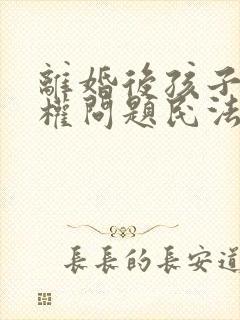 離婚後孩子
權問題民法
長長的長安道